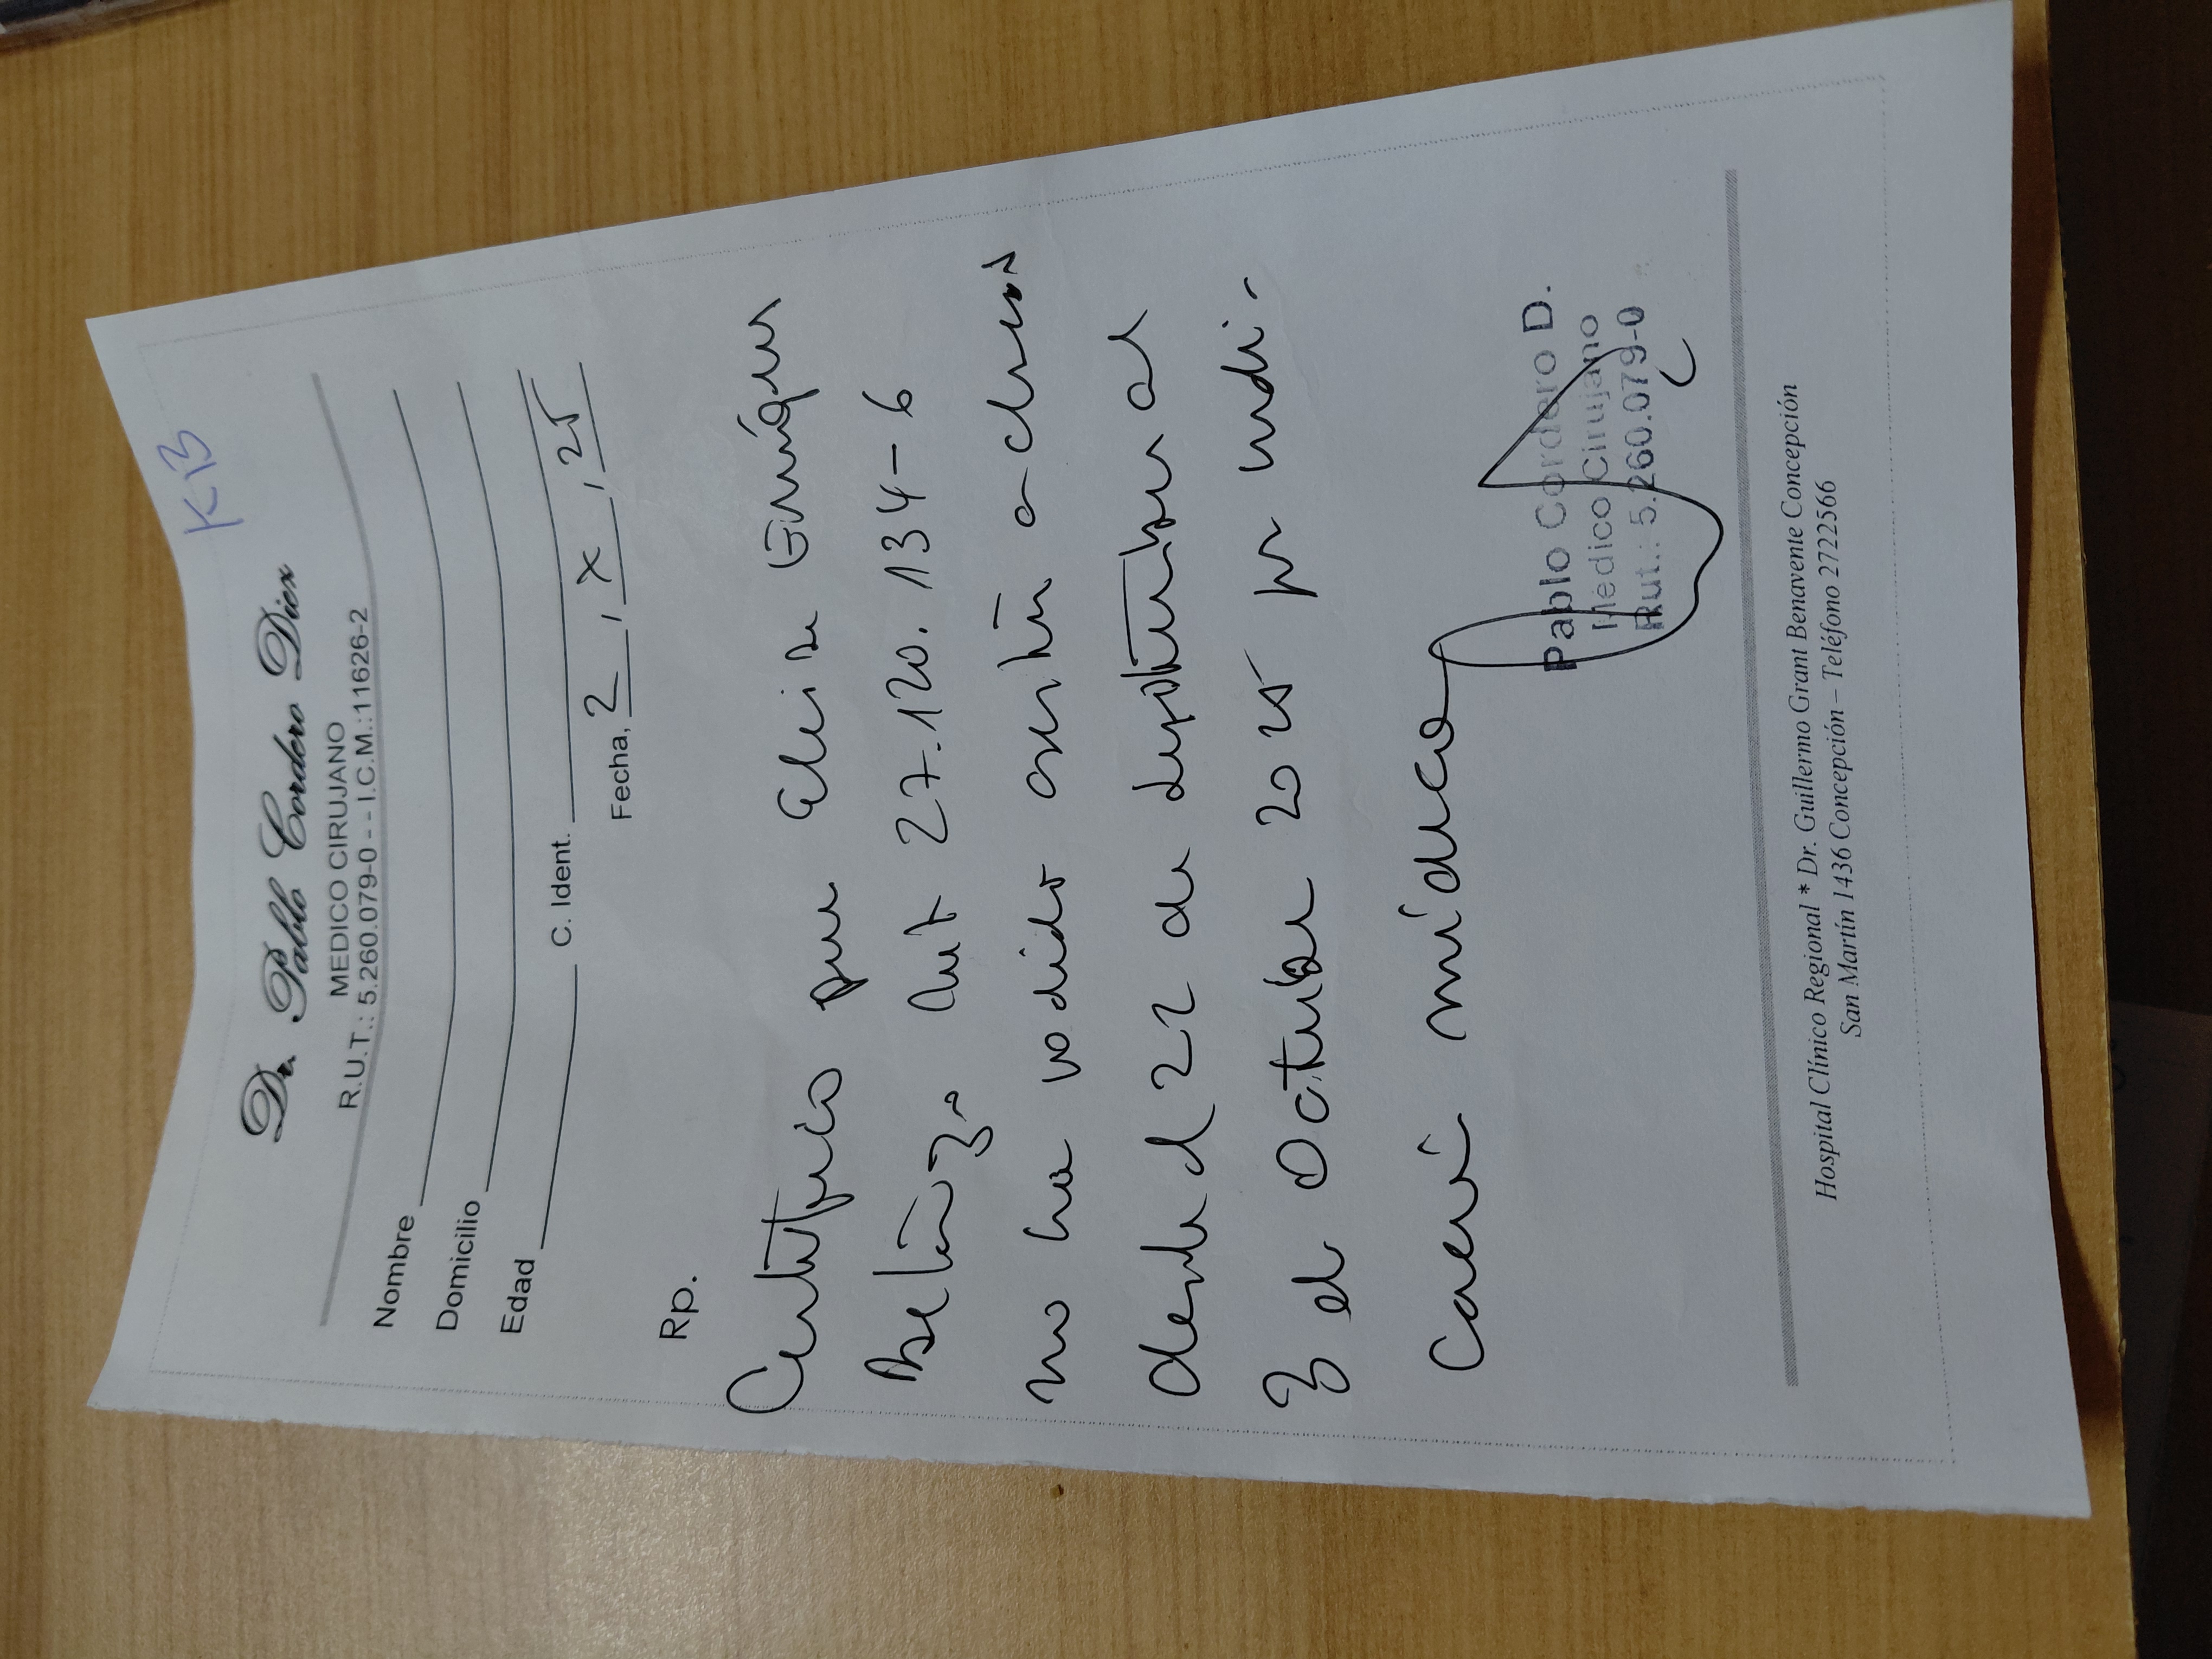 KB
Dr. Pablo Cordero Diex
MEDICO CIRUJANO
R.U.T.: 5.260.079-0 - - I.C.M.:11626-2
Nombre
Domicilio
Edad C. Ident.
Fecha, 2 , X , 25
Rp.
Certifico que Enríquez
Rut 27.120.134-6
no ha podido asistir a clases
desde el 22 de septiembre al
3 de Octubre 2025 por indi-
cación médica
Pablo Cordero D.
Médico Cirujano
Rut.: 5.260.079-0
Hospital Clínico Regional * Dr. Guillermo Grant Benavente Concepción
San Martín 1436 Concepción – Teléfono 2722566